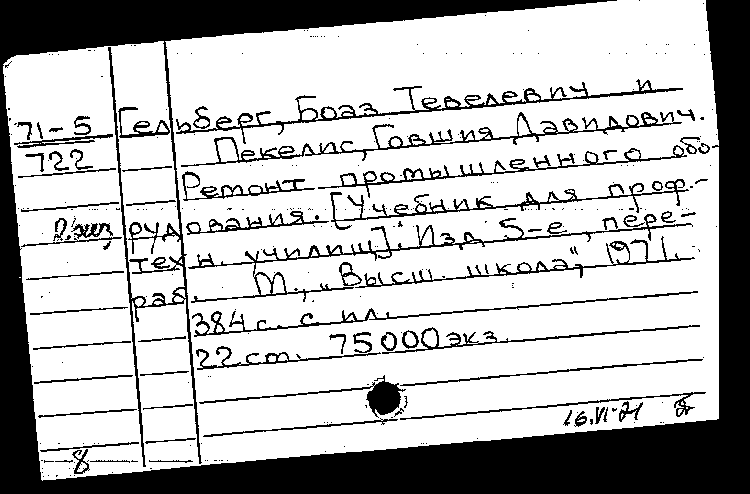 71-5 Гельберг, Боаз Тевелевич и
722 Пекелис, Говшия Давидович.
Ремонт промышленного обо-
2 экз рудования. [Учебник для проф.-
техн. училищ]. Изд 5-е, пере-
раб. М., "Высш. школа", 1971.
384 с. с ил.
22 cm. 75000 экз.
16.VI-71
8